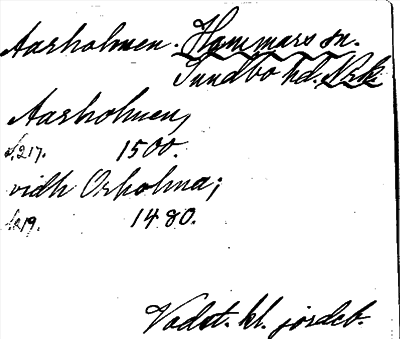 Aasholmen. Hammars sn.
Sundbo hd. Nrk
Aasholmen,
s. 217. 1500.
vidh Osholma;
s. 219. 1480.
Vadst. kl. jordeb.